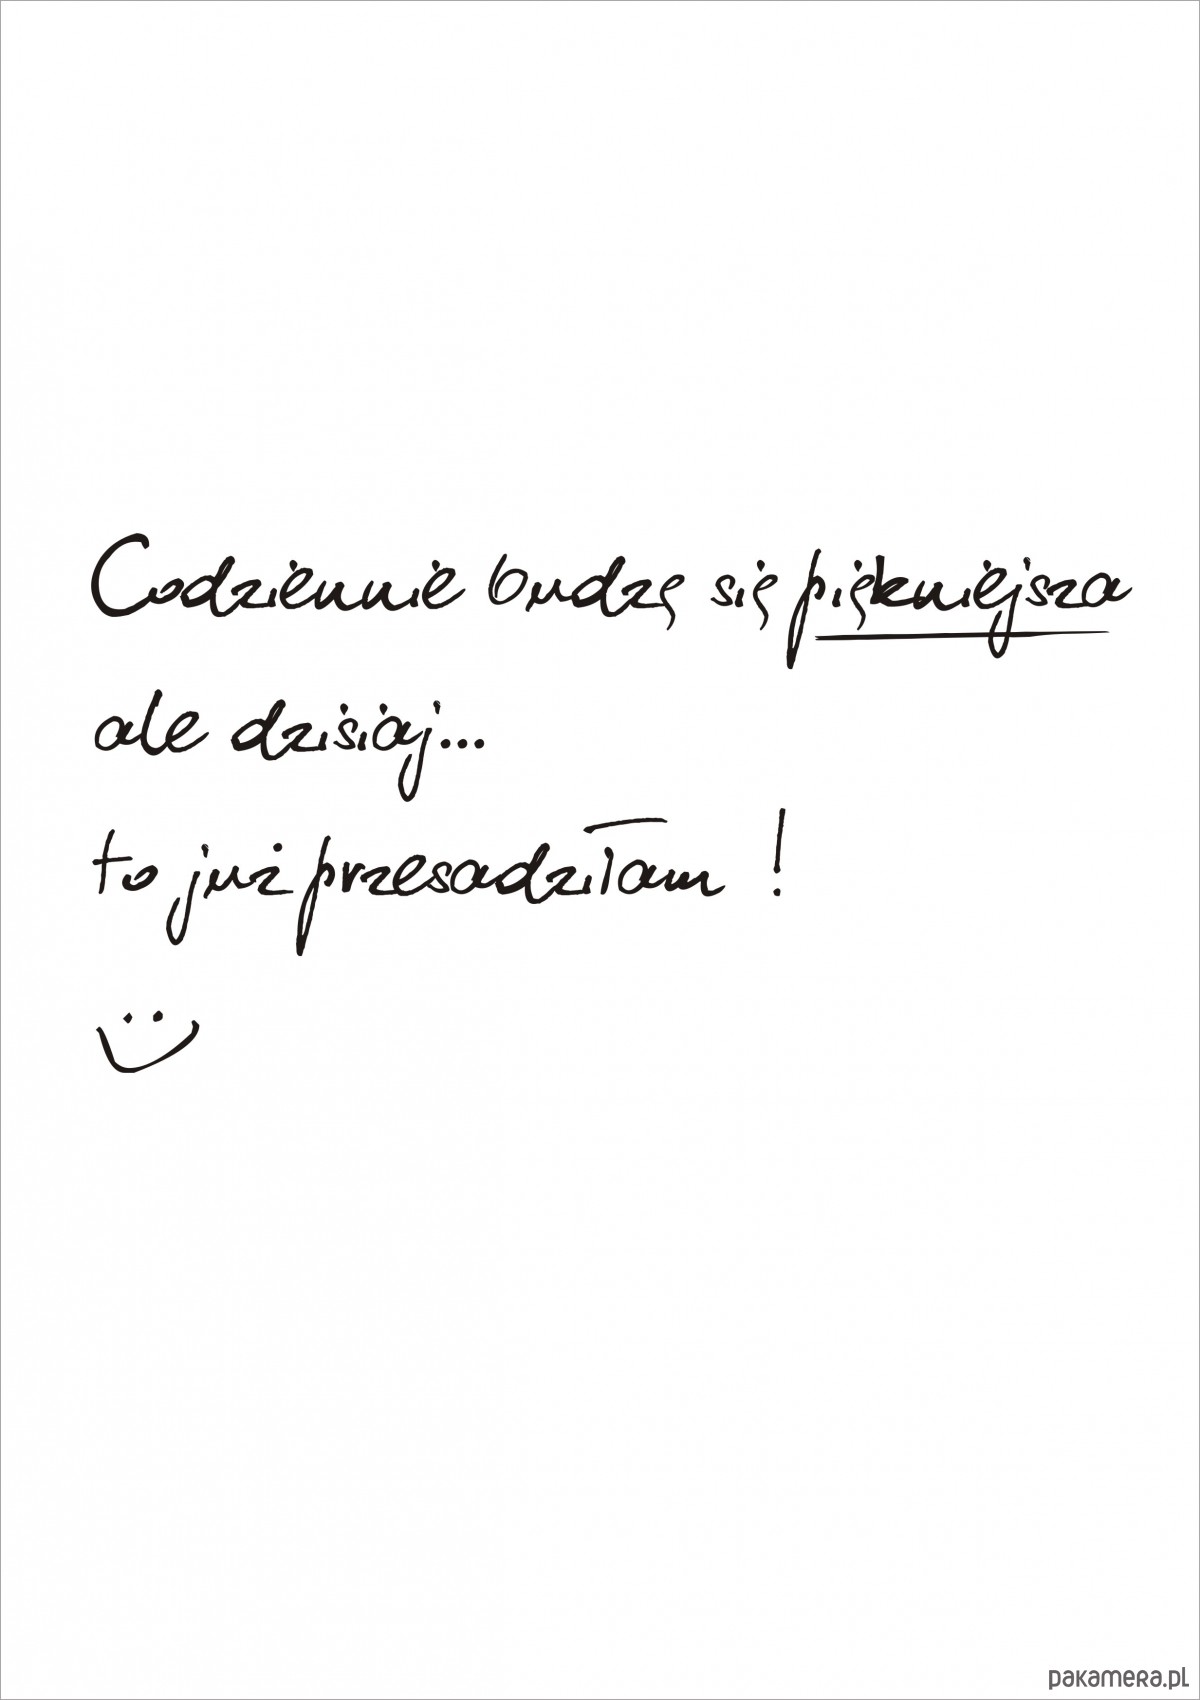 Codziennie budzę się piękniejsza
ale dzisiaj...
to już przesadziłam !
pakamera.pl